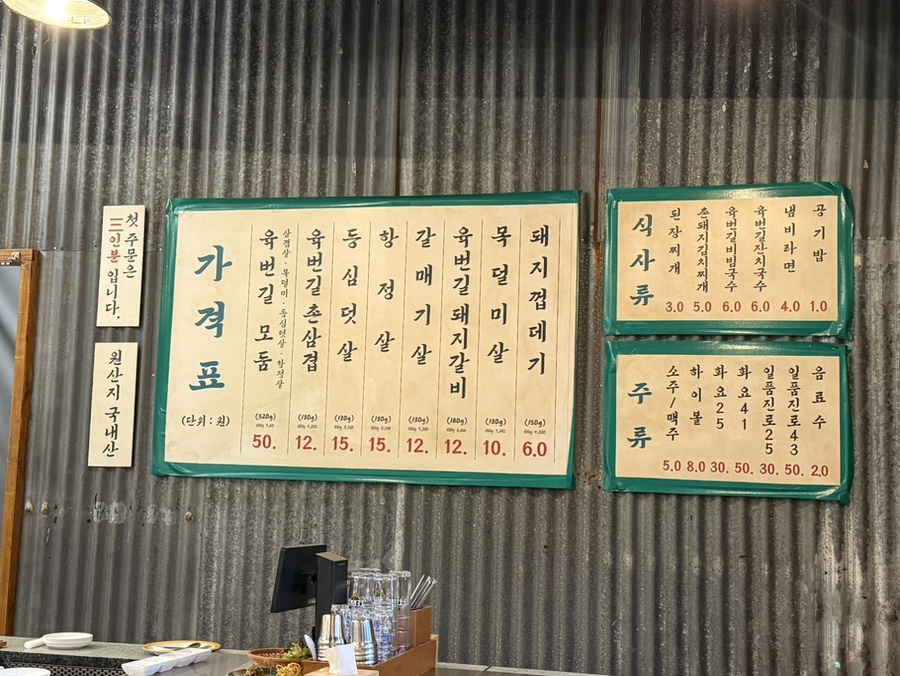 첫 주문은
三인분 입니다.
원산지 국내산
가격표
(단위 : 원)
육번길 모둠
삼겹살 · 목덜미 · 등심덧살 · 항정살
(520g)
50.
육번길 촌삼겹
(130g)
12.
등심덧살
(130g)
15.
항정살
(130g)
15.
갈매기살
(130g)
12.
육번길돼지갈비
(180g)
12.
목덜미살
(130g)
10.
돼지껍데기
(150g)
6.0
식사류
된장찌개
3.0
촌돼지김치찌개
5.0
육번길비빔국수
6.0
육번길잔치국수
6.0
냄비라면
4.0
공기밥
1.0
주류
소주/맥주
5.0
하이볼
8.0
화요25
30.
화요41
50.
일품진로25
30.
일품진로43
50.
음료수
2.0